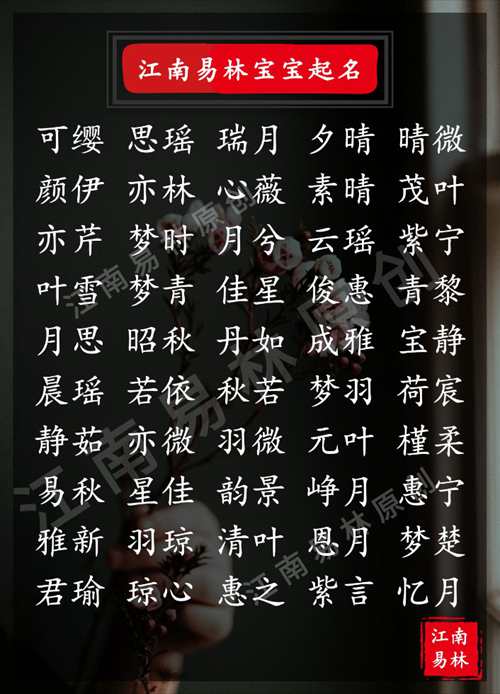 江南易林宝宝起名
可缨 思瑶 瑞月 夕晴 晴微
颜伊 亦林 心薇 素晴 茂叶
亦芹 梦时 月兮 云瑶 紫宁
叶雪 梦青 佳星 俊惠 青黎
月思 昭秋 丹如 成雅 宝静
晨瑶 若依 秋若 梦羽 荷宸
静茹 亦微 羽微 元叶 槿柔
易秋 星佳 韵景 峥月 惠宁
雅新 羽琼 清叶 恩月 梦楚
君瑜 琼心 惠之 紫言 忆月
江南易林原创
江南易林原创
江南易林原创
江南
易林